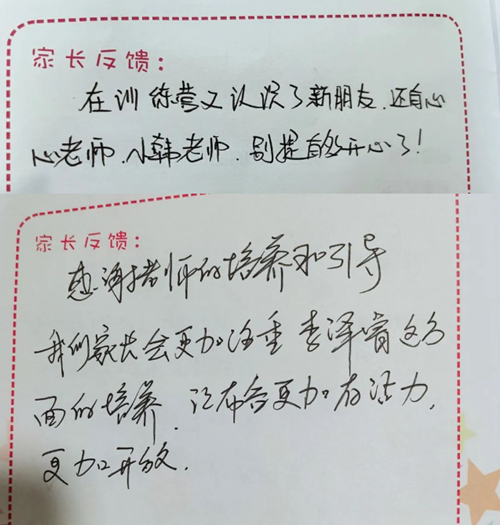 家长反馈：
在训练营又认识了新朋友，还有心
心老师、小韩老师，别提有多开心了！
家长反馈：
感谢老师的培养和引导
我们家长会更加注重李泽睿这方
面的培养，让布谷更加有活力，
更加开放.